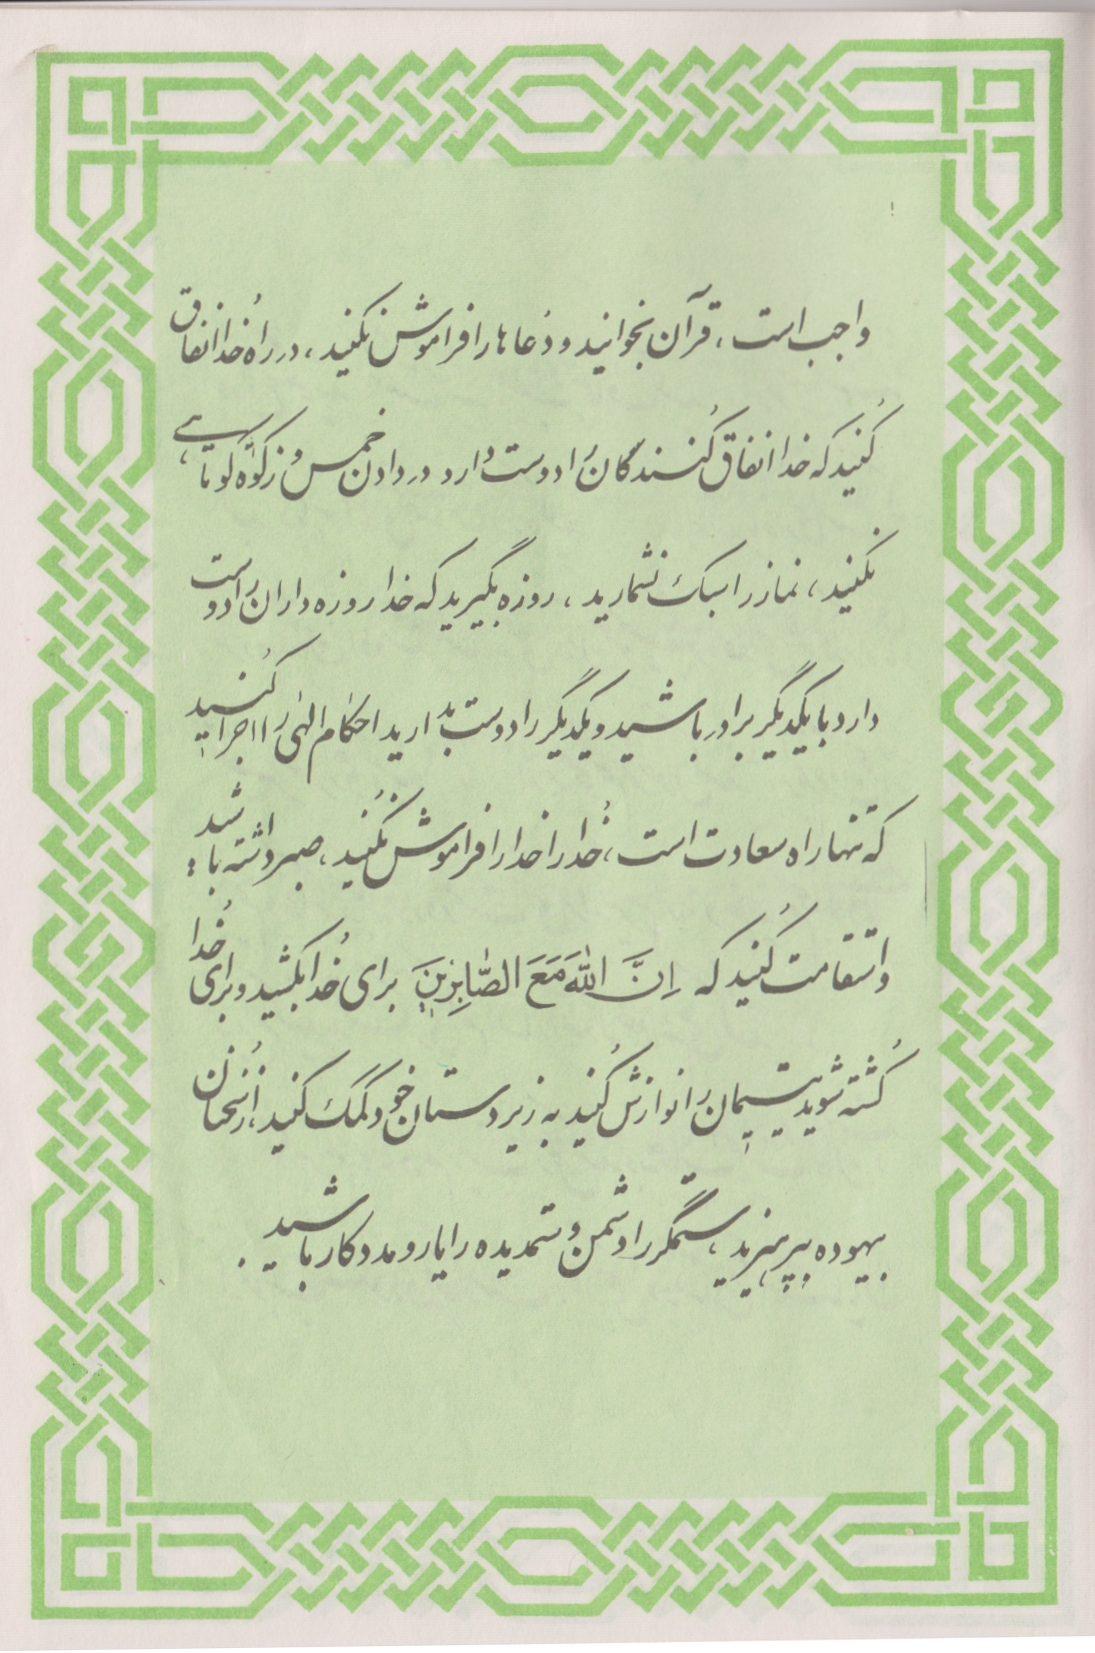 واجب است، قرآن بخوانید و دُعاها را فراموش نکنید، در راهُ خدا انفاق
کُنید که خدا انفاق کُنندگان را دوست دارد در دادن خمس و زکوٰة کوتاهی
نکنید، نماز را سبک نشمارید، روزه بگیرید که خدا روزه داران را دوست
دارد با یکدیگر برادر باشید و یکدیگر را دوست بدارید احکام الهیٰ را اجرا کُنید
که تنها راه سعادت است، خُدا را خدا را فراموش نکُنید، صبر داشته باشید
و استقامت کُنید که اِنَّ اللهَ مَعَ الصّٰابِرینَ برای خُدا بکشید و برای خُدا
کُشته شوید یتیمان را نوازش کُنید به زیردستان خود کمک کنید، از سُخنان
بیهوده بپرهیزید، ستمگر را دشمن و ستمدیده را یار و مددکار باشید.